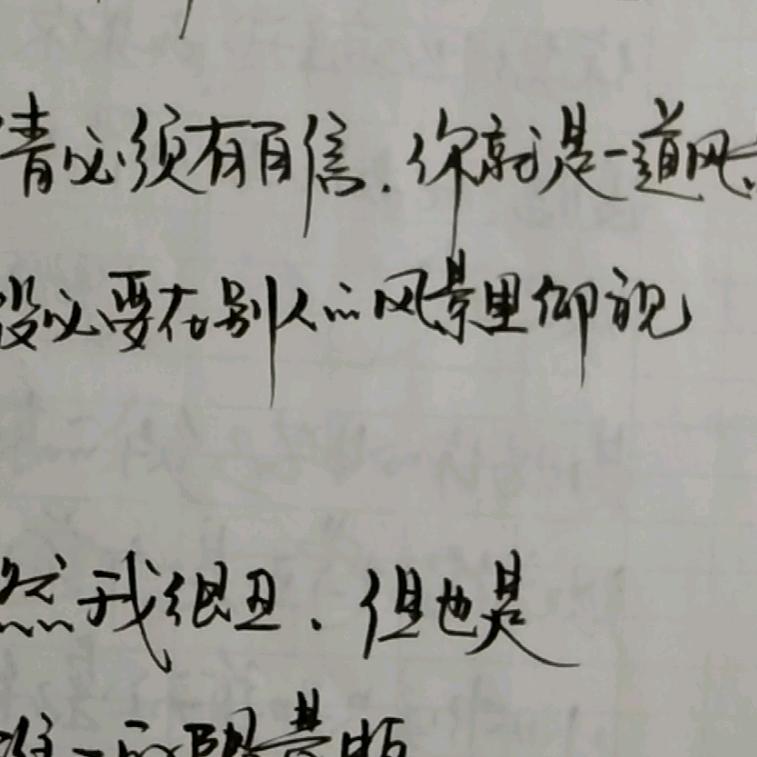 请必须有自信.你就是一道风
没必要在别人的风景里仰视
然我很丑.但也是
唯一的限量版